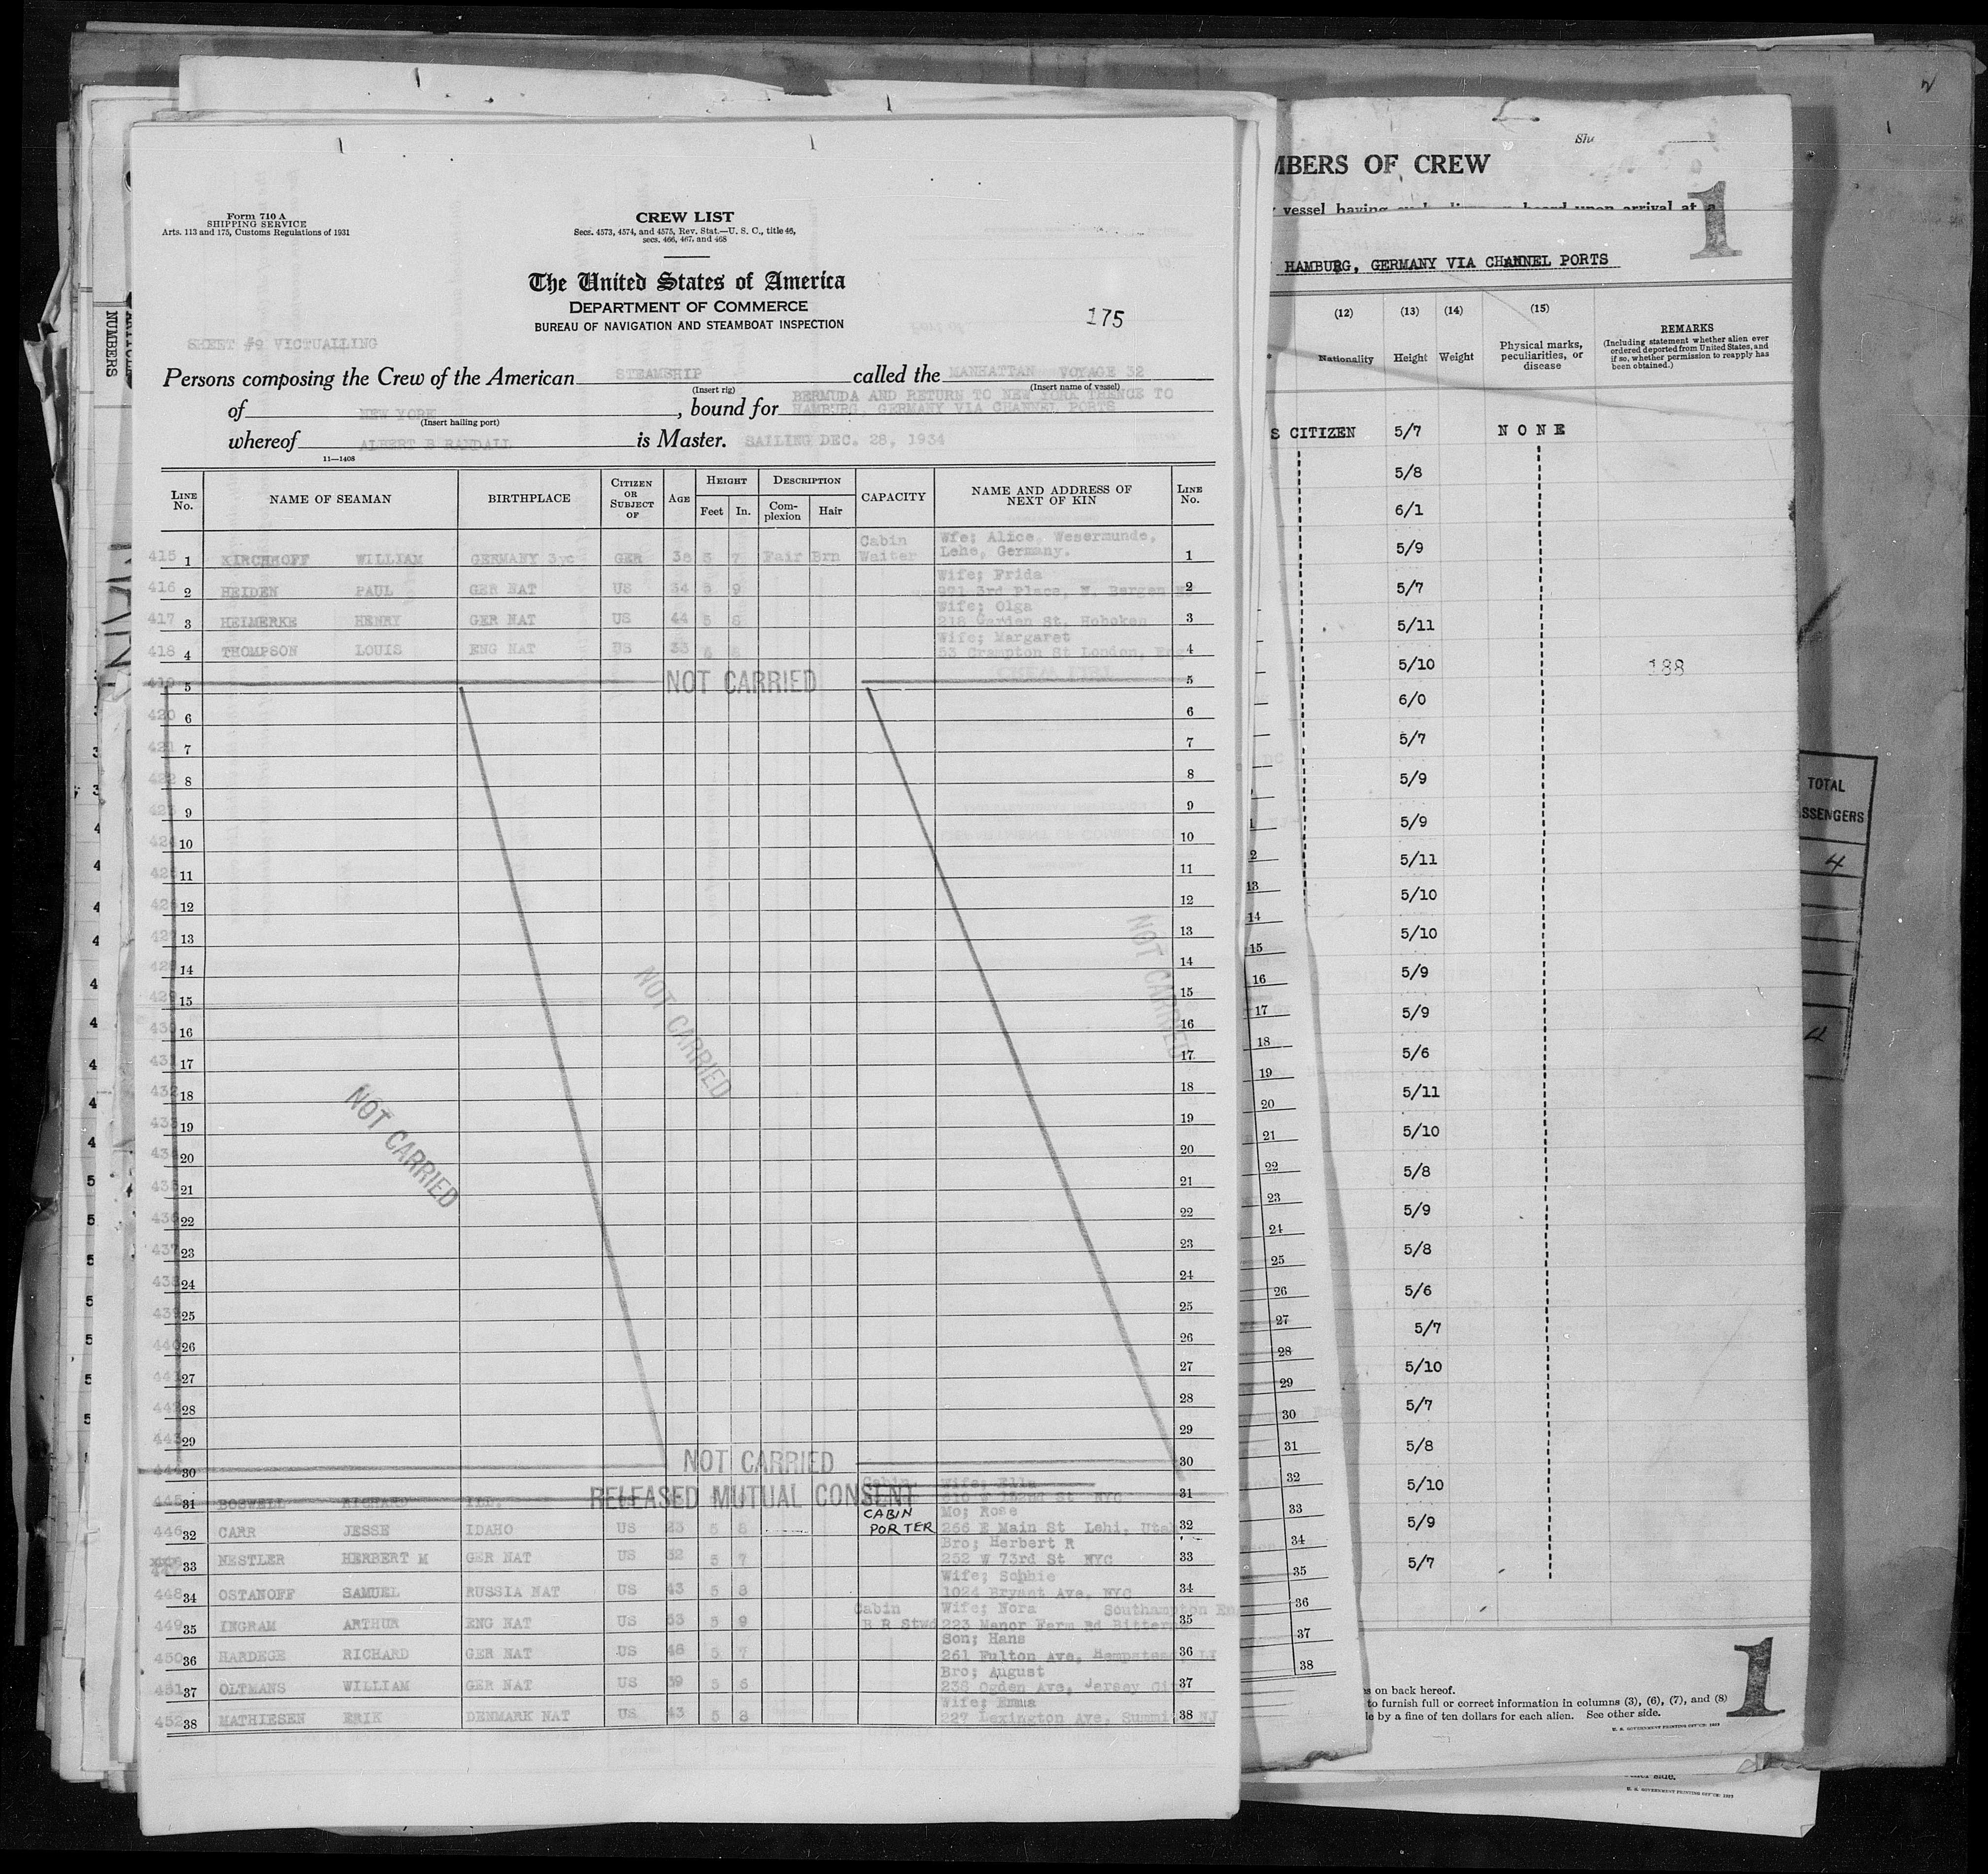 Form 710 A
SHIPPING SERVICE
Arts. 113 and 175, Customs Regulations of 1931
CREW LIST
Secs. 4573, 4574, and 4575, Rev. Stat.—U. S. C., title 46,
secs. 466, 467, and 468
The United States of America
DEPARTMENT OF COMMERCE
BUREAU OF NAVIGATION AND STEAMBOAT INSPECTION
175
SHEET #9 VICTUALLING
Persons composing the Crew of the American STEAMSHIP called the MANHATTAN VOYAGE 32
(Insert rig) (Insert name of vessel)
of NEW YORK, bound for BERMUDA AND RETURN TO NEW YORK THENCE TO
HAMBURG, GERMANY VIA CHANNEL PORTS
(Insert hailing port)
whereof ALBERT B RANDALL is Master. SAILING DEC. 28, 1934
11—1408
LINE No. NAME OF SEAMAN BIRTHPLACE CITIZEN OR SUBJECT OF AGE HEIGHT Feet In. DESCRIPTION Complexion Hair CAPACITY NAME AND ADDRESS OF NEXT OF KIN LINE No.
415 1 KIRCHHOFF WILLIAM GERMANY 3yc GER 38 5 7 Fair Brn Cabin Waiter Wfe; Alice, Wesermunde, Lehe, Germany. 1
416 2 HEIDEN PAUL GER NAT US 34 5 9 Wife; Frida 921 3rd Place, N. Bergen 2
417 3 HEIMERKE HENRY GER NAT US 44 5 6 Wife; Olga 218 Garden St. Hoboken 3
418 4 THOMPSON LOUIS ENG NAT US 33 Wife; Margaret 53 Crampton St London, Eng 4
419 5 NOT CARRIED 5
420 6 6
421 7 7
422 8 8
423 9 9
424 10 10
425 11 11
426 12 12
427 13 13
428 14 14
429 15 15
430 16 16
431 17 17
432 18 18
433 19 19
434 20 20
435 21 21
436 22 22
437 23 23
438 24 24
439 25 25
440 26 26
441 27 27
442 28 28
443 29 29
444 30 NOT CARRIED 30
NOT CARRIED
NOT CARRIED
NOT CARRIED
445 31 BOSWELL RICHARD RELEASED MUTUAL CONSENT Cabin Wife; Ella NYC 31
446 32 CARR JESSE IDAHO US 23 5 8 CABIN PORTER Mo; Rose 266 E Main St Lehi, Utah 32
33 NESTLER HERBERT M GER NAT US 32 5 7 Bro; Herbert R 252 W 73rd St NYC 33
448 34 OSTANOFF SAMUEL RUSSIA NAT US 43 5 8 Wife; Sophie 1024 Bryant Ave, NYC 34
449 35 INGRAM ARTHUR ENG NAT US 53 5 9 Cabin B R Stwd Wife; Nora Southampton En 223 Manor Farm Rd Bitterne 35
450 36 HARDEGE RICHARD GER NAT US 48 5 7 Son; Hans 261 Fulton Ave, Hempstead, LI 36
451 37 OLTMANS WILLIAM GER NAT US 39 5 6 Bro; August 238 Ogden Ave, Jersey City 37
452 38 MATHIESEN ERIK DENMARK NAT US 43 5 8 Wife; Emma 227 Lexington Ave, Summit NJ 38
MBERS OF CREW
1
HAMBURG, GERMANY VIA CHANNEL PORTS
(12) (13) (14) (15)
Nationality Height Weight Physical marks, peculiarities, or disease
REMARKS
(Including statement whether alien ever
ordered deported from United States, and
if so, whether permission to reapply has
been obtained.)
S CITIZEN 5/7 NONE
5/8
6/1
5/9
5/7
5/11
5/10 188
6/0
5/7
5/9
5/9
5/11
5/10
5/10
5/9
5/9
5/6
5/11
5/10
5/8
5/9
5/8
5/6
5/7
5/10
5/7
5/8
5/10
5/9
5/7
13
14
15
16
17
18
19
20
21
22
23
24
25
26
27
28
29
30
31
32
33
34
35
36
37
38
s on back hereof.
to furnish full or correct information in columns (3), (6), (7), and (8)
le by a fine of ten dollars for each alien. See other side.
1
TOTAL
SSENGERS
4
4
NUMBERS